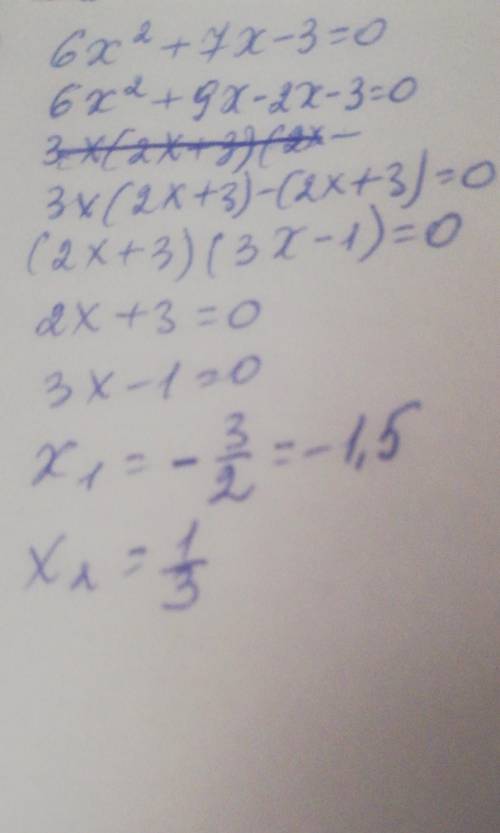 6x² + 7x - 3 = 0
6x² + 9x - 2x - 3 = 0
3x(2x+3)(2x -
3x(2x+3) - (2x+3) = 0
(2x+3)(3x-1) = 0
2x + 3 = 0
3x - 1 = 0
x₁ = - 3/2 = -1,5
x₂ = 1/3